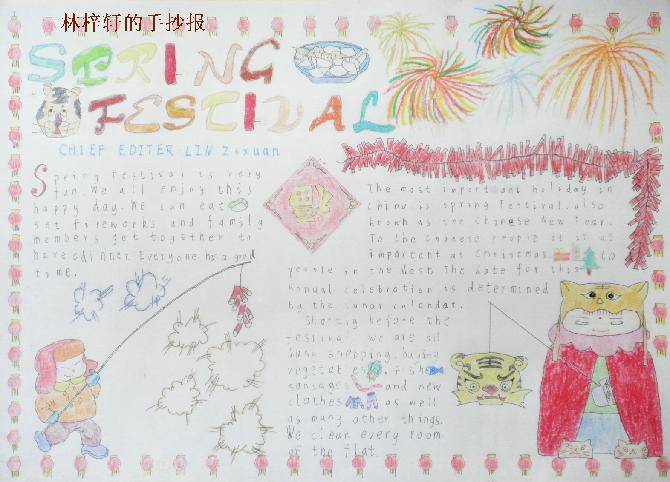 林梓轩的手抄报
SPRING
FESTIVAL
CHIEF EDITER LIN Zixuan
Spring Festival is very
fun. We all enjoy this
happy day. We can eat
set fireworks and family
members get together to
have dinner. Everyone has a good
time.
福
The most important holiday in
China is spring Festival, also
known as the Chinese New Year.
To the Chinese people it is as
important as Christmas to
people in the West. The date for this
Annual celebration is determined
by the lunar calendar.
Shortly before the
festival, we are all
busy shopping, buying
vegetables, fish
sausages and new
clothes as well
as many other things.
We clean every room
of the flat.